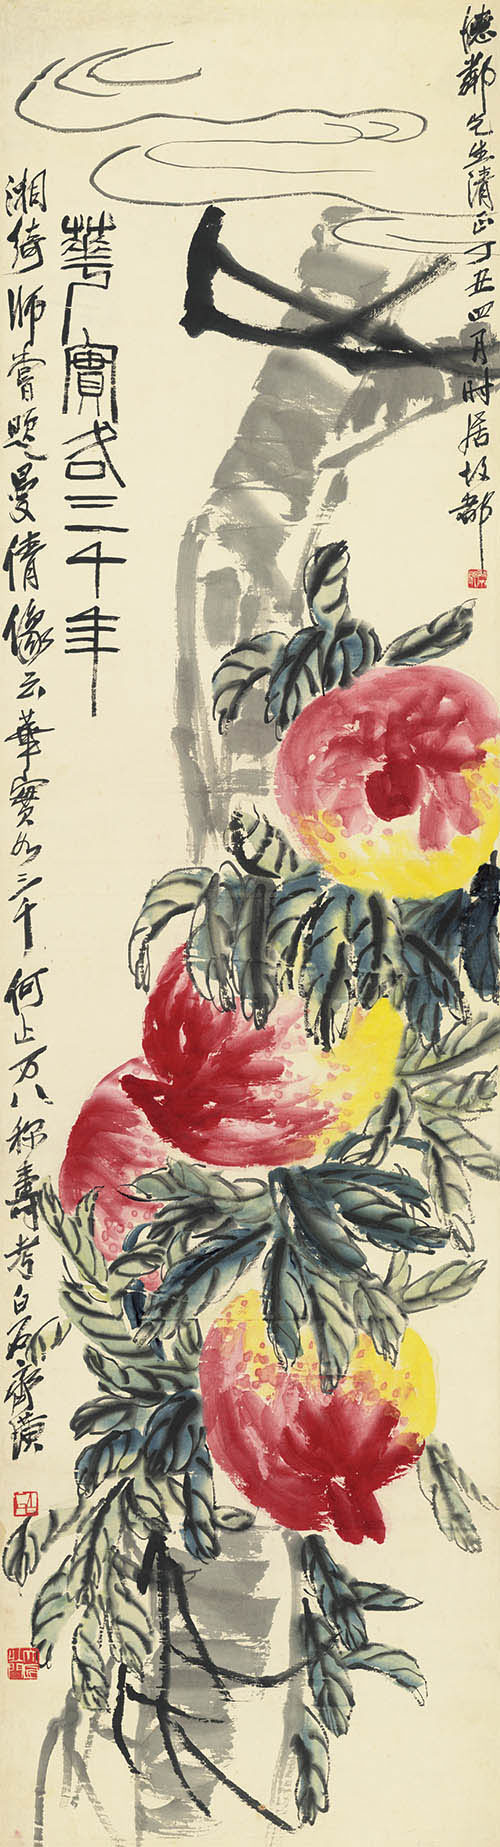 德鄰先生清正丁丑四月时居故都
華實各三千年
湘綺師嘗題曼倩像云華實各三千何止万八称壽考白石齊璜